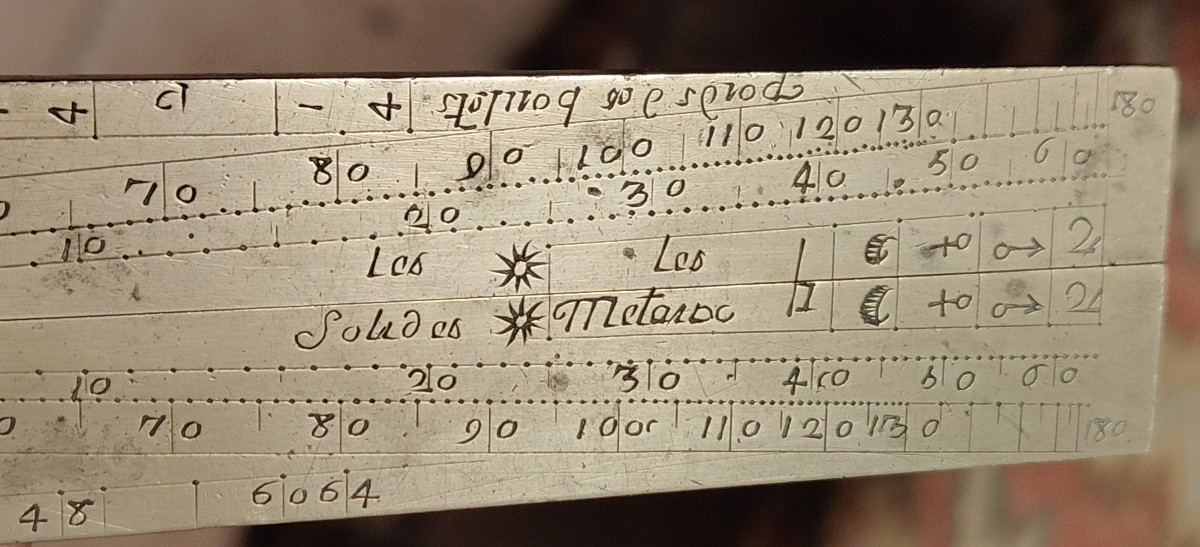 poids des boulets 4 - 5 4
70 80 90 100 110 120 130 180
10 20 30 40 50 60
Les Les
Solides Metaux
10 20 30 40 50 60
70 80 90 100 110 120 130 180
48 60 64